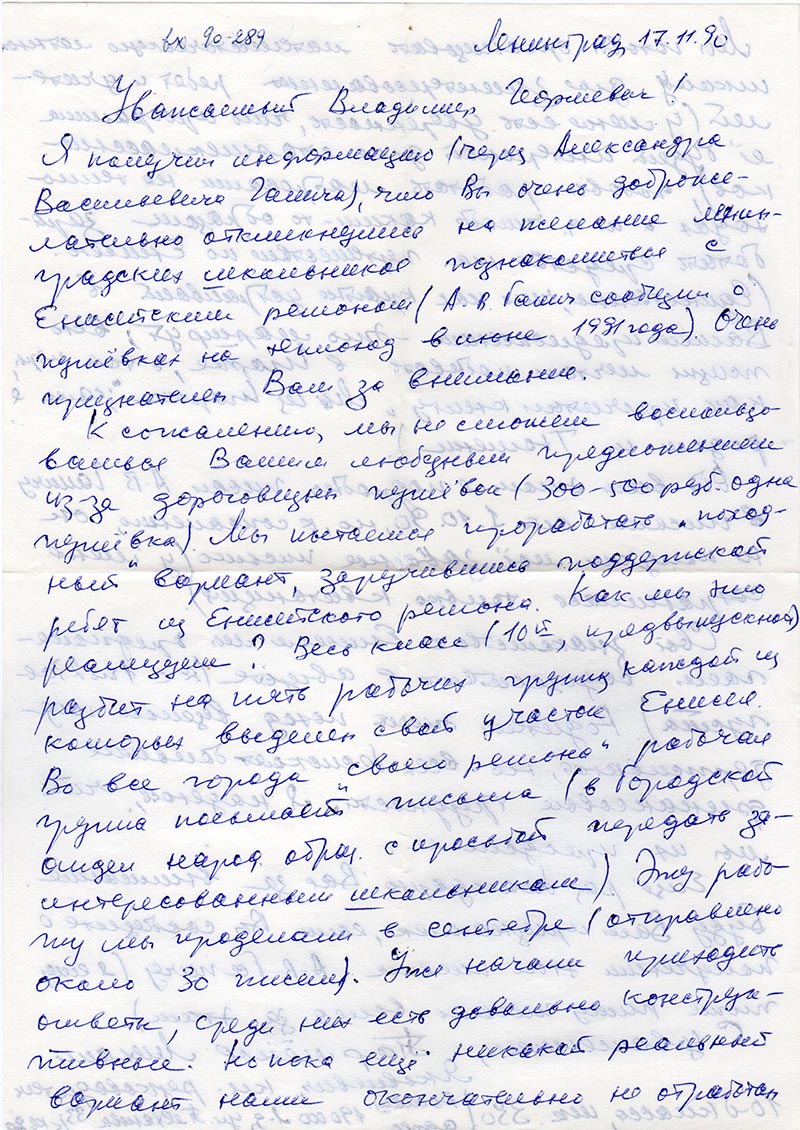 вх 90-289
Ленинград, 17.11.90
Уважаемый Владимир Георгиевич!
Я получил информацию (через Александра
Васильевича Гашича), что Вы очень доброже-
лательно откликнулись на желание ленин-
градских школьников познакомиться с
Енисейским регионом (А.В. Гашич сообщил о
путёвках на теплоход в июне 1991 года). Очень
признателен Вам за внимание.
К сожалению, мы не сможем воспользо-
ваться Вашим любезным предложением
из-за дороговизны путёвок (300-500 руб. одна
путёвка). Мы пытаемся проработать „поход-
ный" вариант, заручившись поддержкой
ребят из Енисейского региона. Как мы это
реализуем? Весь класс (10й, предвыпускной)
разбит на пять рабочих групп, каждой из
которых выделен свой участок Енисея.
Во все города „своего региона" рабочая
группа посылает письма (в городской
отдел народ. образ. с просьбой передать за-
интересованным школьникам). Эту рабо-
ту мы проделали в сентябре (отправлено
около 30 писем). Уже начали приходить
ответы, среди них есть довольно конструк-
тивные. Но пока ещё никакой реальный
вариант нами окончательно не отработан